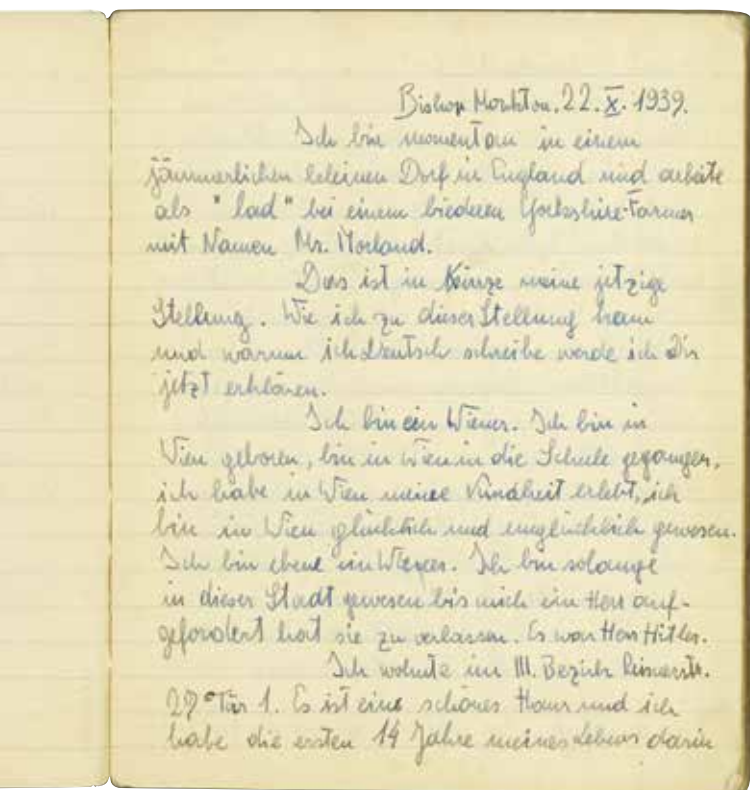 Bishop Monkton. 22. X. 1939.
Ich bin momentan in einem
jämmerlichen kleinen Dorf in England und arbeite
als "lad" bei einem biederen Yorkshire-Farmer
mit Namen Mr. Morland.
Dies ist in Kürze meine jetzige
Stellung. Wie ich zu dieser Stellung kam
und warum ich deutsch schreibe werde ich Dir
jetzt erklären.
Ich bin ein Wiener. Ich bin in
Wien geboren, bin in Wien in die Schule gegangen,
ich habe in Wien meine Kindheit erlebt, ich
bin in Wien glücklich und unglücklich gewesen.
Ich bin eben ein Wiener. Ich bin solange
in dieser Stadt gewesen bis mich ein Herr auf-
gefordert hat sie zu verlassen. Es war Herr Hitler.
Ich wohnte im III. Bezirk Reisnerstr.
29 Tür 1. Es ist eine schönes Haus und ich
habe die ersten 14 Jahre meines Lebens darin